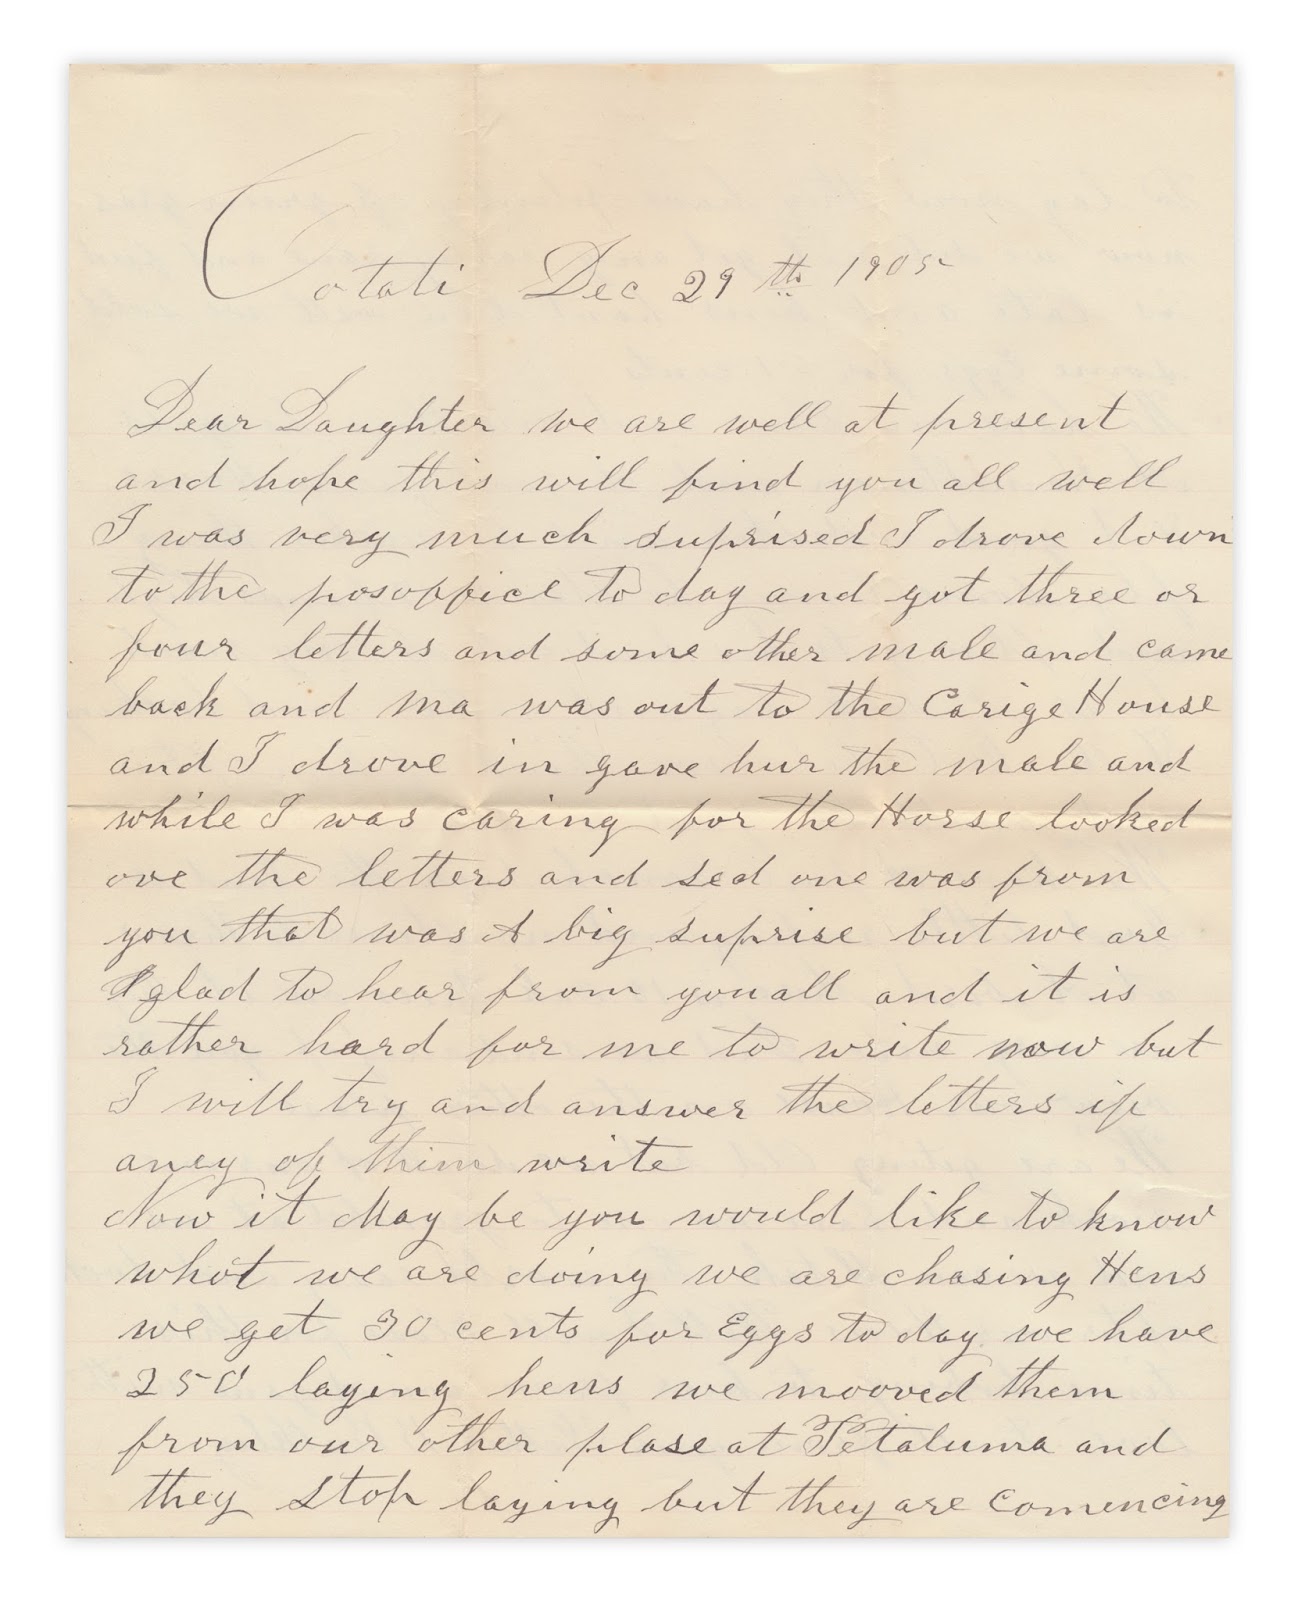 Cotati Dec 29th 1905
Dear Daughter we are well at present
and hope this will find you all well
I was very much suprised I drove down
to the posoffice to day and got three or
four letters and some other male and came
back and ma was out to the Carige House
and I drove in gave hur the male and
while I was caring for the Horse looked
ove the letters and sed one was from
you that was A big suprise but we are
glad to hear from you all and it is
rather hard for me to write now but
I will try and answer the letters if
aney of them write
Now it May be you would like to know
what we are doing we are chasing Hens
we get 30 cents for Eggs to day we have
250 laying hens we mooved them
from our other plase at Petaluma and
they stop laying but they are comencing